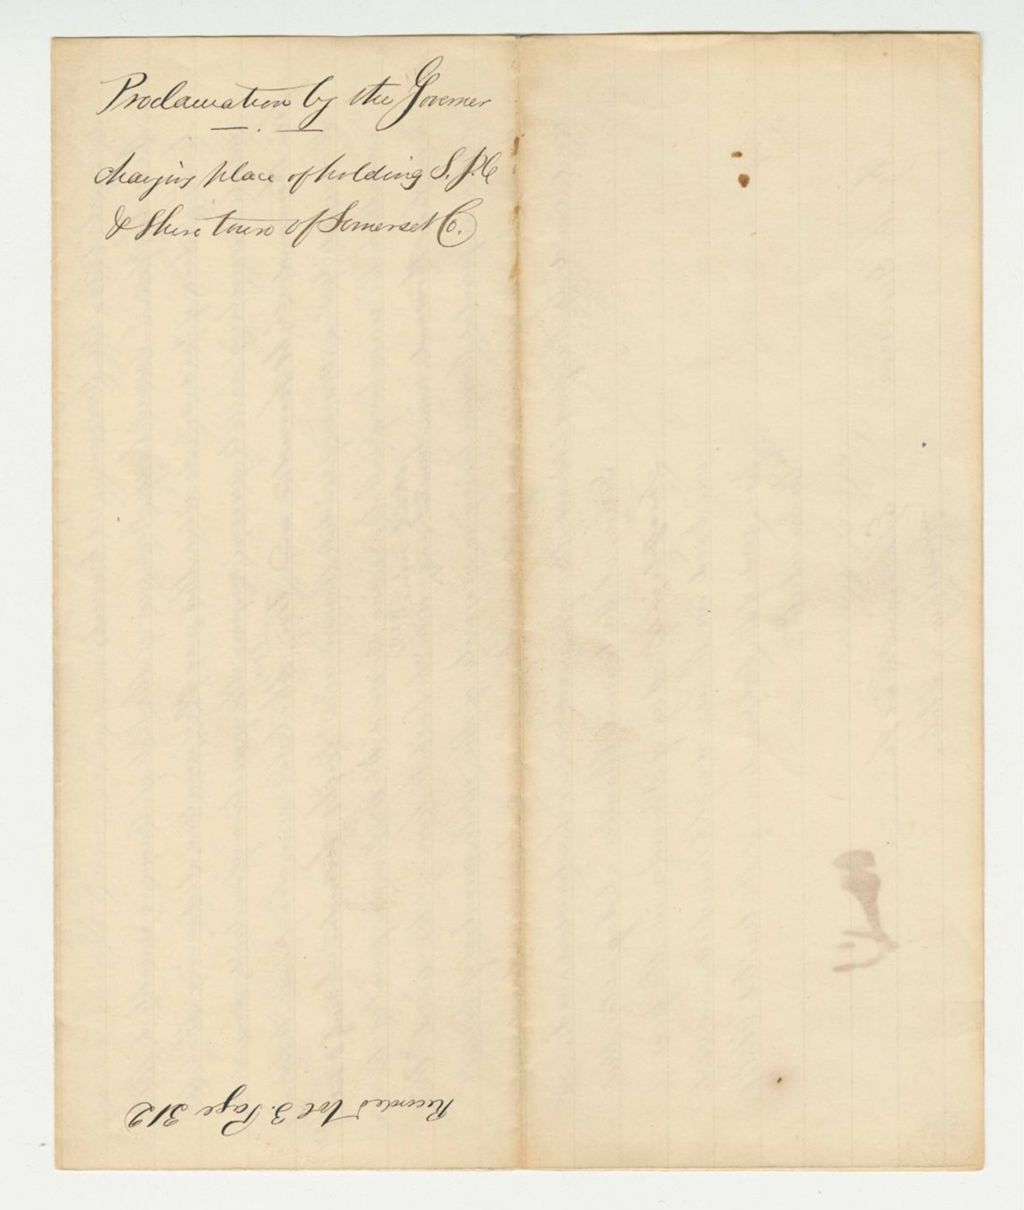 Proclamation by the Governor
changing place of holding S. J. C
& Shire town of Somerset Co.
Recorded Vol 3. Page 312